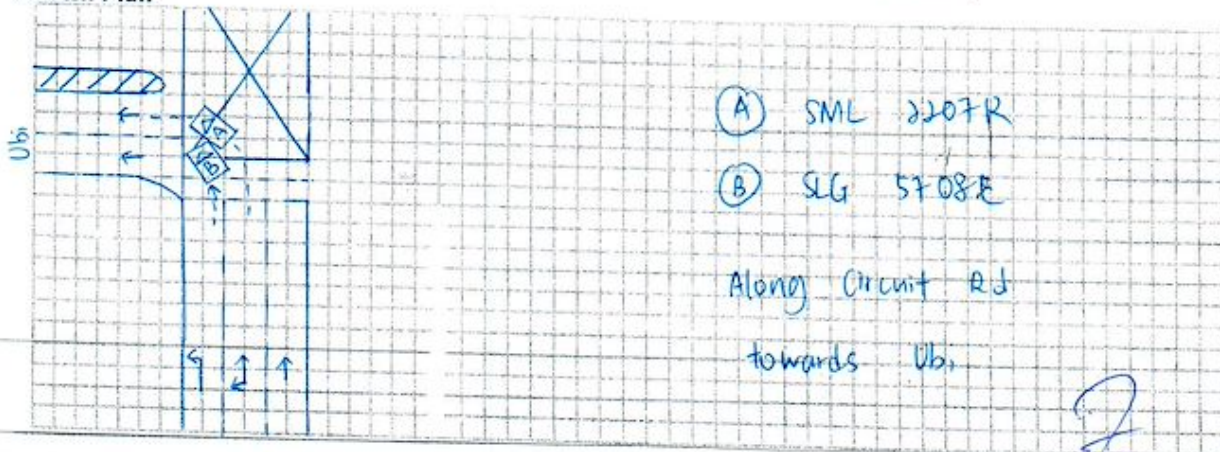 Ubi
A
B
(A) SML 2207R
(B) SLG 5708E
Along Circuit Rd
towards Ubi